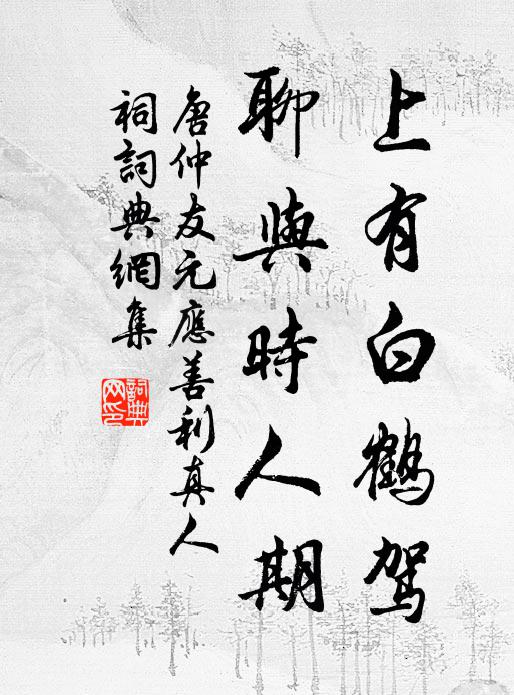 上有白鶴駕
聊與時人期
唐仲友元應善利真人
祠詞典網集
詞典
网印